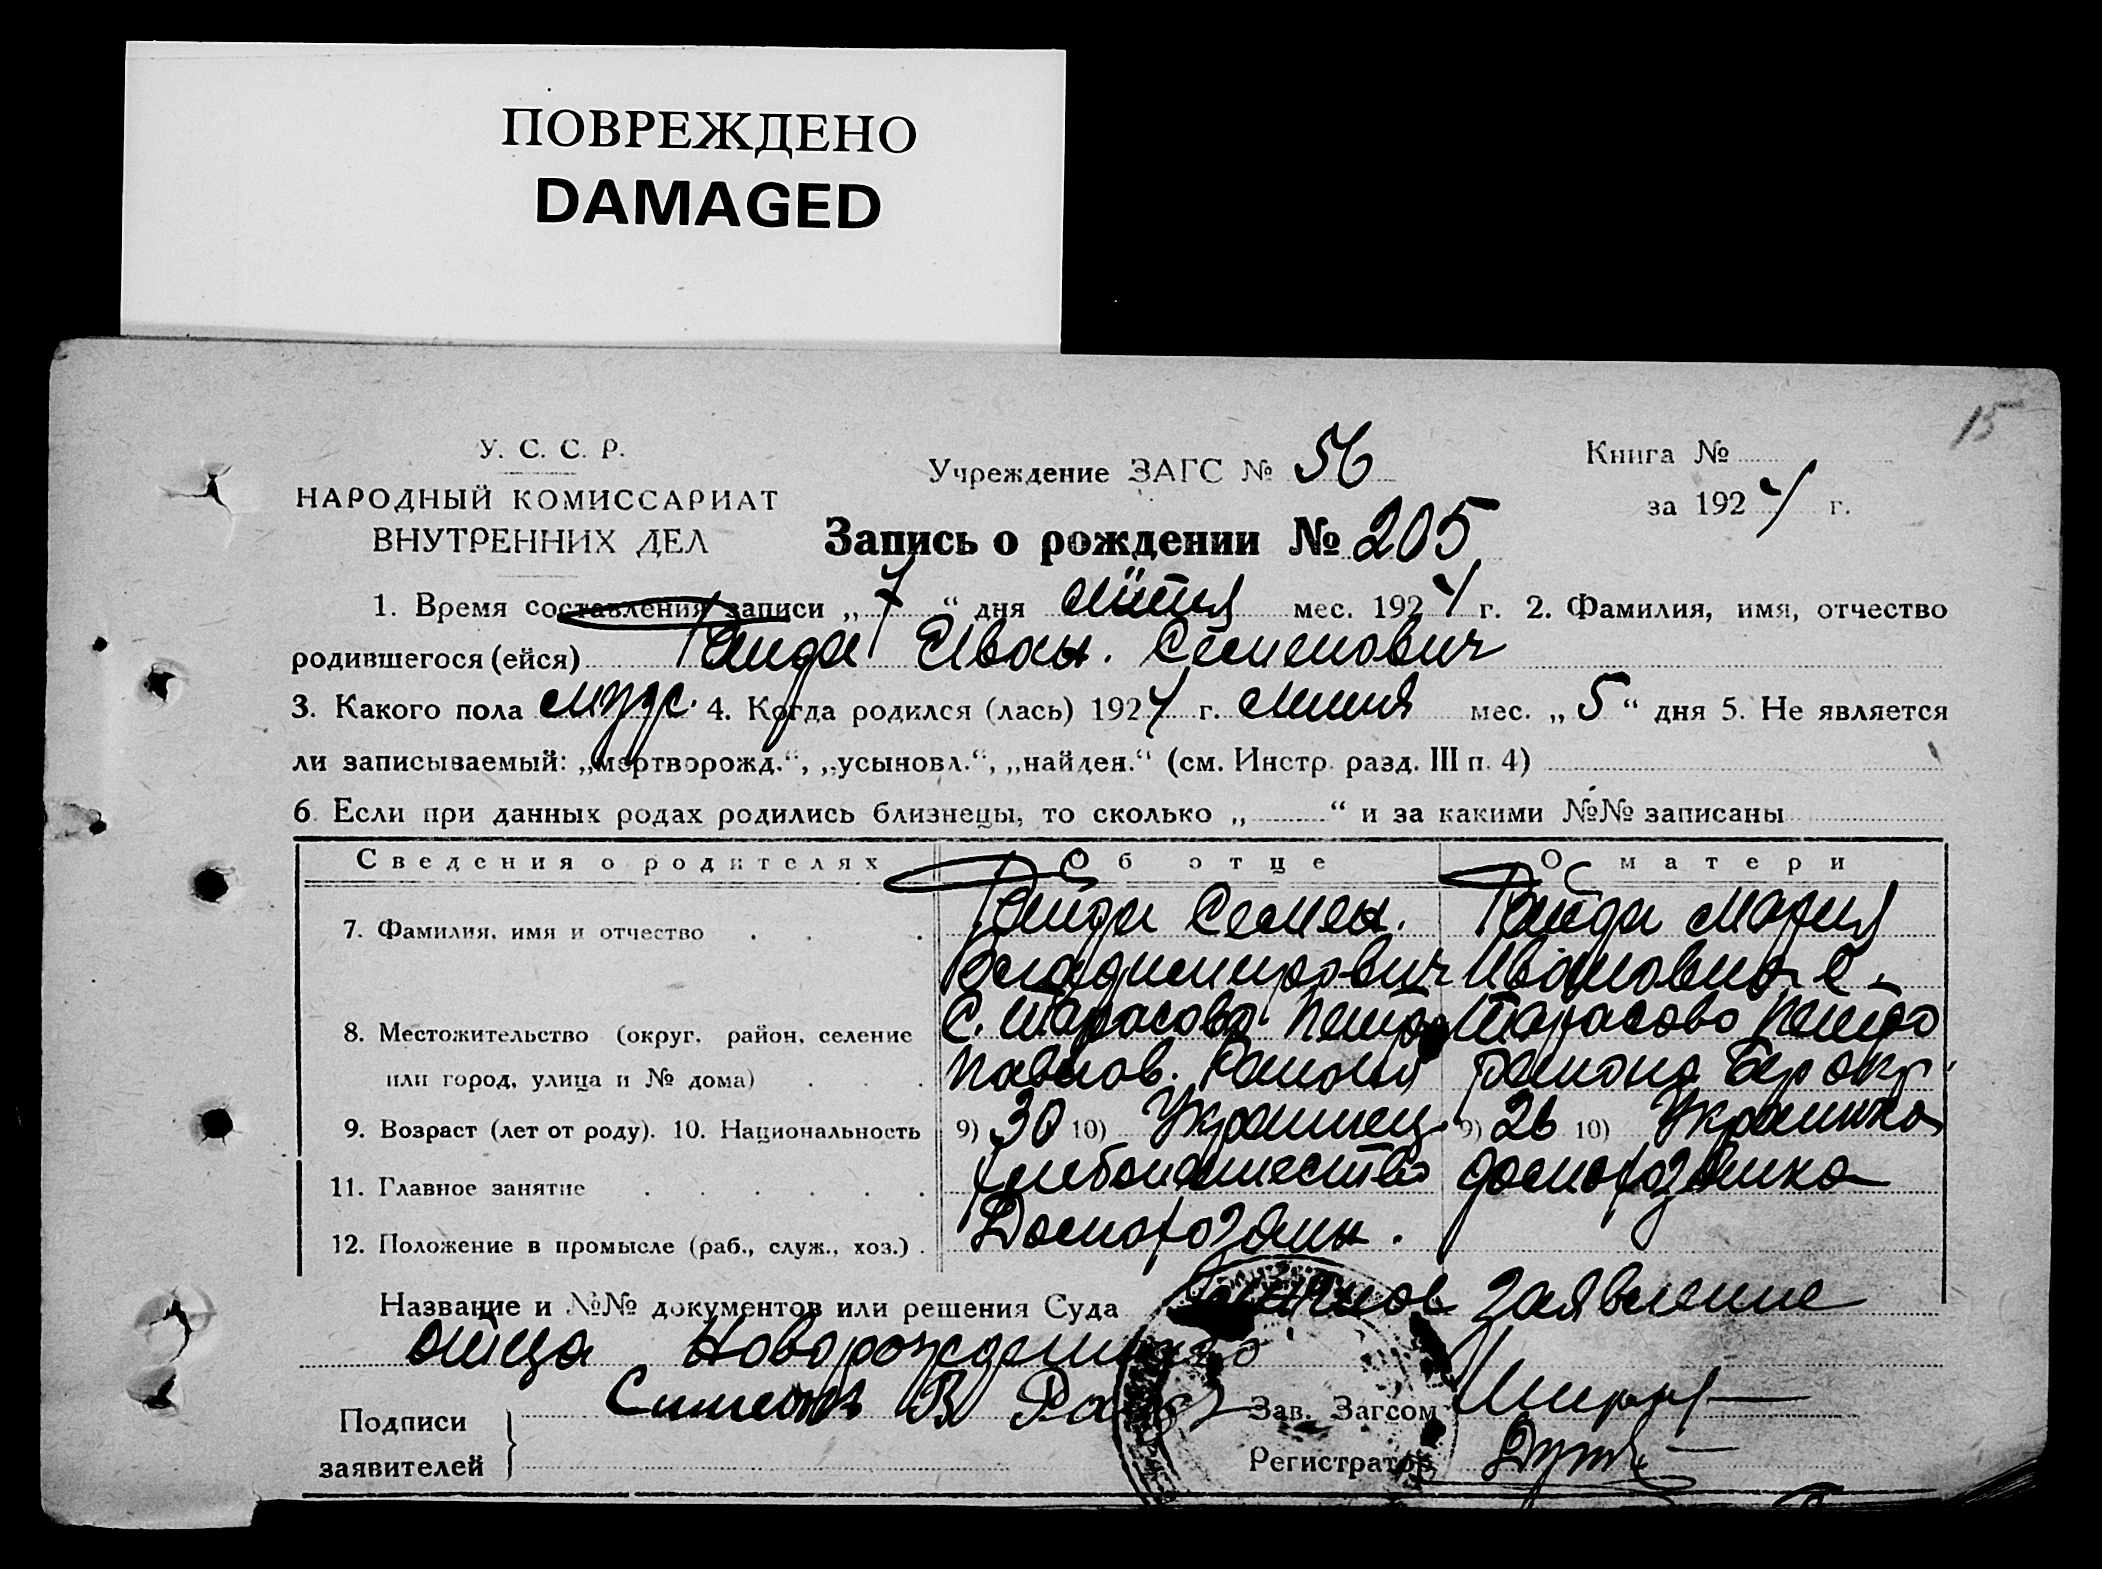 ПОВРЕЖДЕНО
DAMAGED
15
У. С. С. Р.
НАРОДНЫЙ КОМИССАРИАТ
ВНУТРЕННИХ ДЕЛ
Учреждение ЗАГС № 56
Книга №
за 1924 г.
Запись о рождении № 205
1. Время составления записи „ 7 “ дня мес. 1924 г. 2. Фамилия, имя, отчество
родившегося (ейся) Гайда Иван. Семенович
3. Какого пола муж. 4. Когда родился (лась) 1924 г. мес. „ 5 “ дня 5. Не является
ли записываемый: „мертворожд.“, „усыновл.“, „найден.“ (см. Инстр. разд. III п. 4)
6. Если при данных родах родились близнецы, то сколько „ “ и за какими №№ записаны
Сведения о родителях Об отце О матери
7. Фамилия, имя и отчество Гайда Семен. Гайда Мария
Владимирович Ивановна с.
8. Местожительство (округ, район, селение с. Тарасовка Тарасово
или город, улица и № дома) района
9. Возраст (лет от роду). 10. Национальность 9) 30 10) Украинец 9) 26 10) Украинка
11. Главное занятие хлебопашество домохозяйка
12. Положение в промысле (раб., служ., хоз.) Домохозяин.
Название и №№ документов или решения Суда заявление
отца новорожденного
Подписи
заявителей
Зав. Загсом
Регистратор